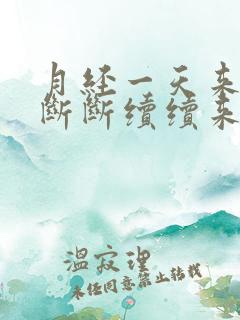 月经一天来
断断续续来
温寂理
未经同意禁止转载